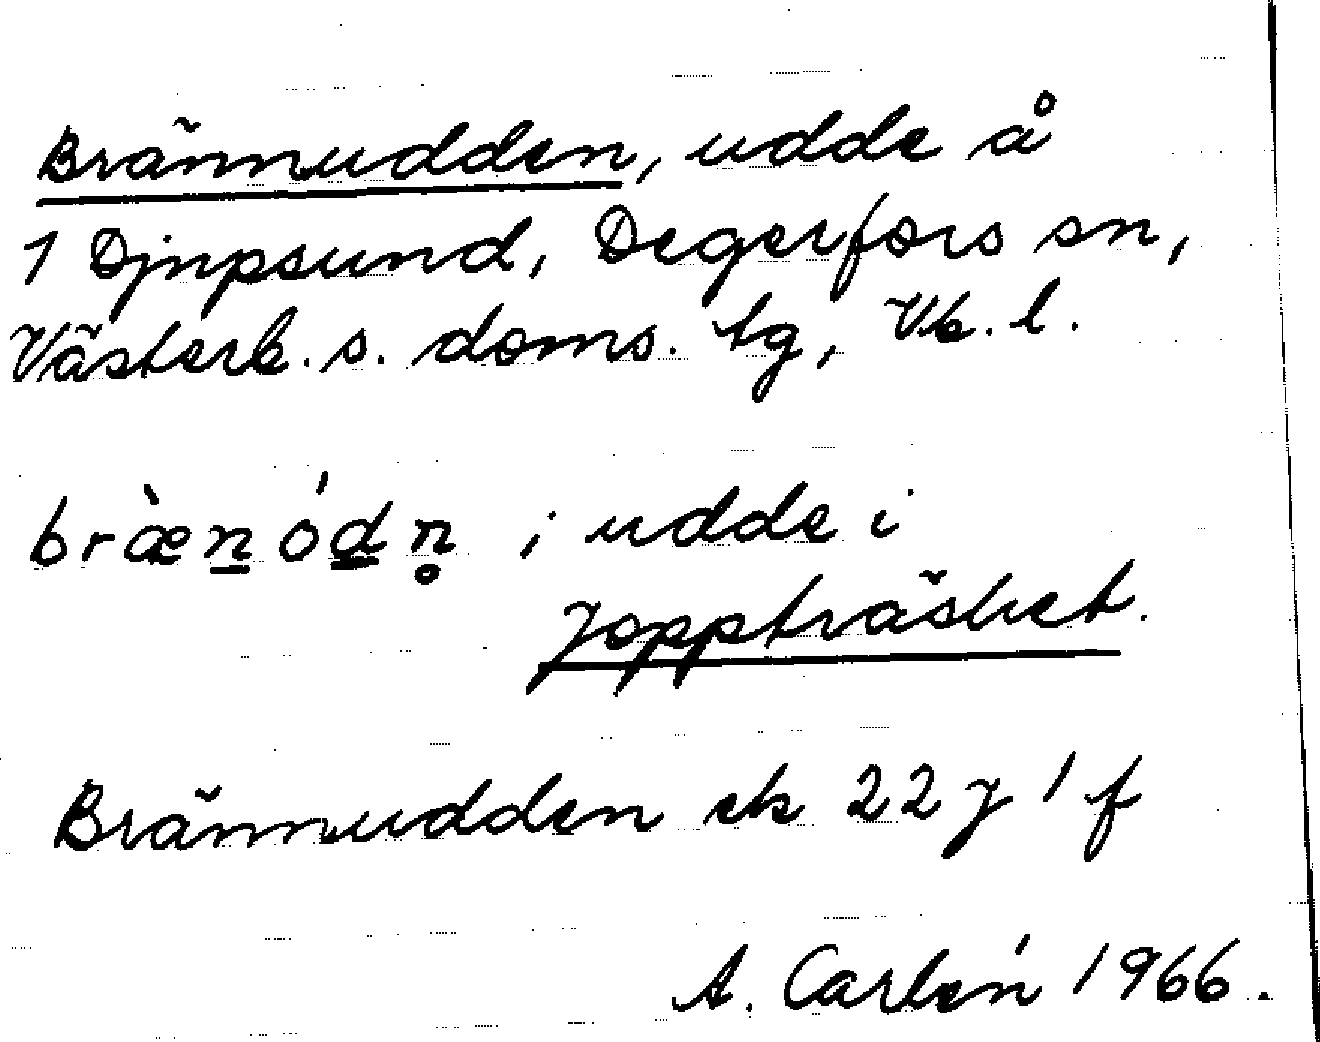 Brännudden, udde å
1 Djupsund, Degerfors sn,
Västerb. s. doms. tg, Vb. l.
bræ̀n̲ód̲n̥ ; udde i
Joppträsket.
Brännudden ek 22 J 1 f
A. Carlén 1966.